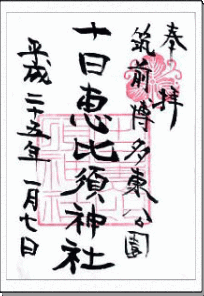 奉拝
筑前博多東公園
十日恵比須神社
平成二十五年一月七日